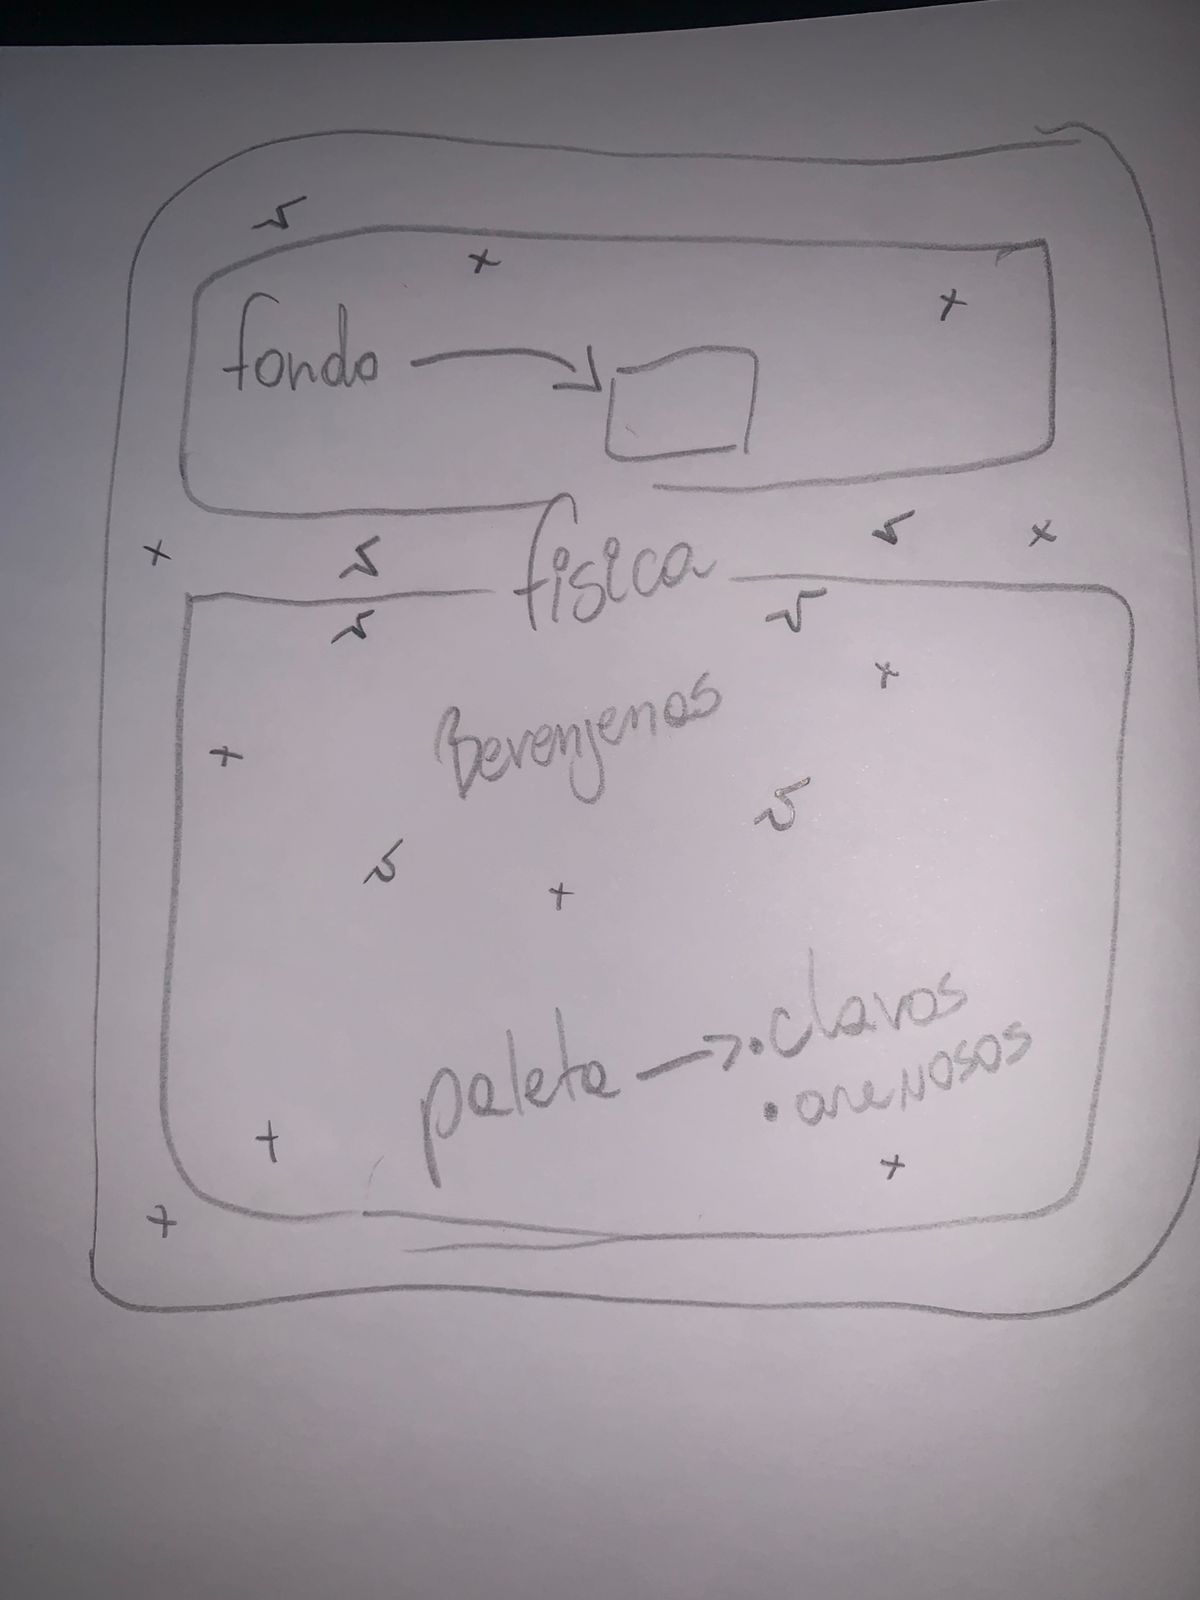 fondo
fisica
Berenjenas
paleta → • claros
• arenosos